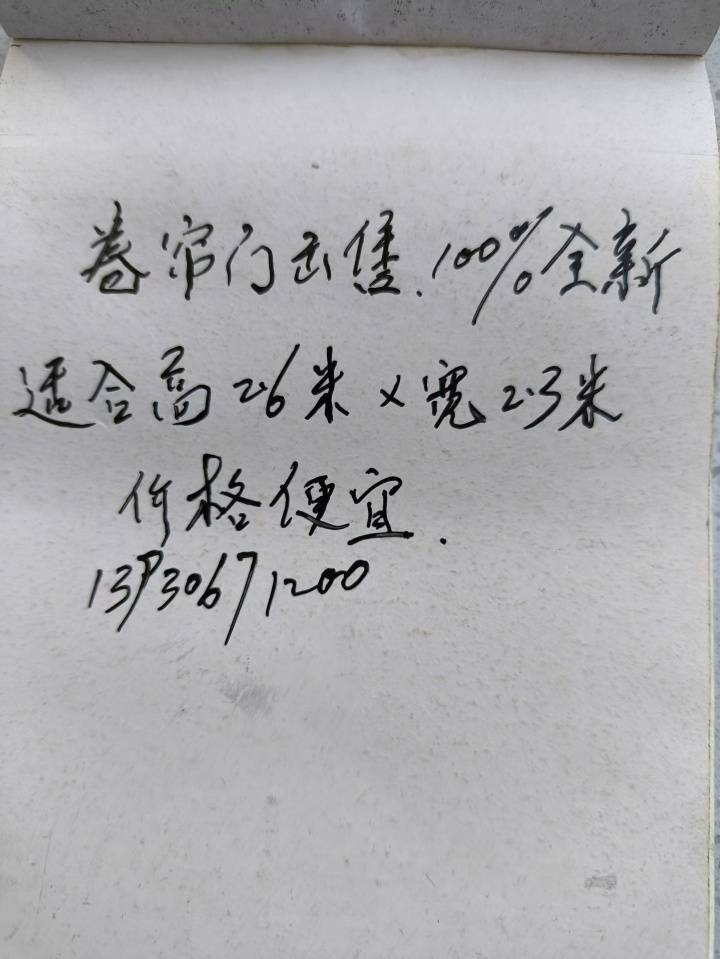 卷帘门出售.100%全新
适合高2.6米×宽2.3米
价格便宜.
13930671200